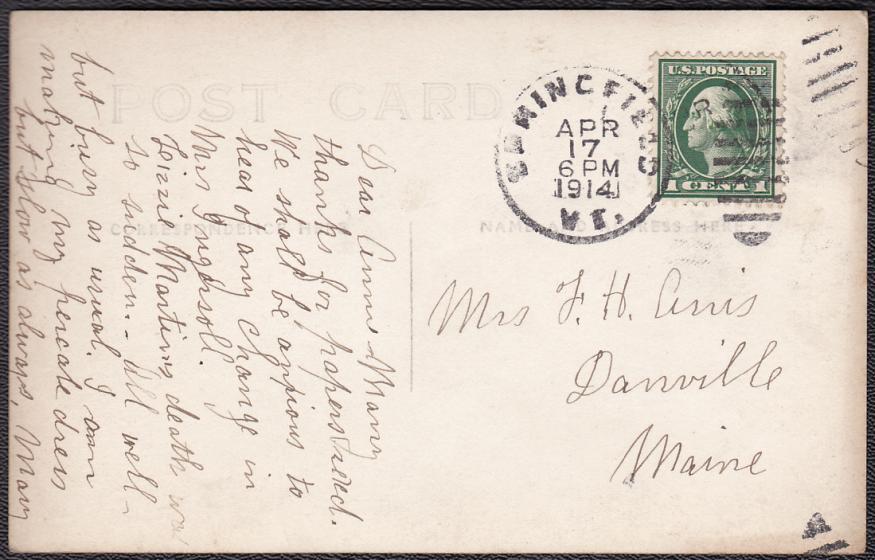 POST CARD
CORRESPONDENCE HERE
NAME AND ADDRESS HERE
SPRINGFIELD
APR
17
6 PM
1914
VT.
U.S. POSTAGE
1 CENT 1
Dear Annie - Many
thanks for papers rec'd.
We shall be anxious to
hear of any change in
Mrs Ingersoll.
Lizzie Martin's death was
so sudden. - All well -
but busy as usual. I am
making my percale dress
but slow as always, Mary
Mrs F. H.
Danville
Maine